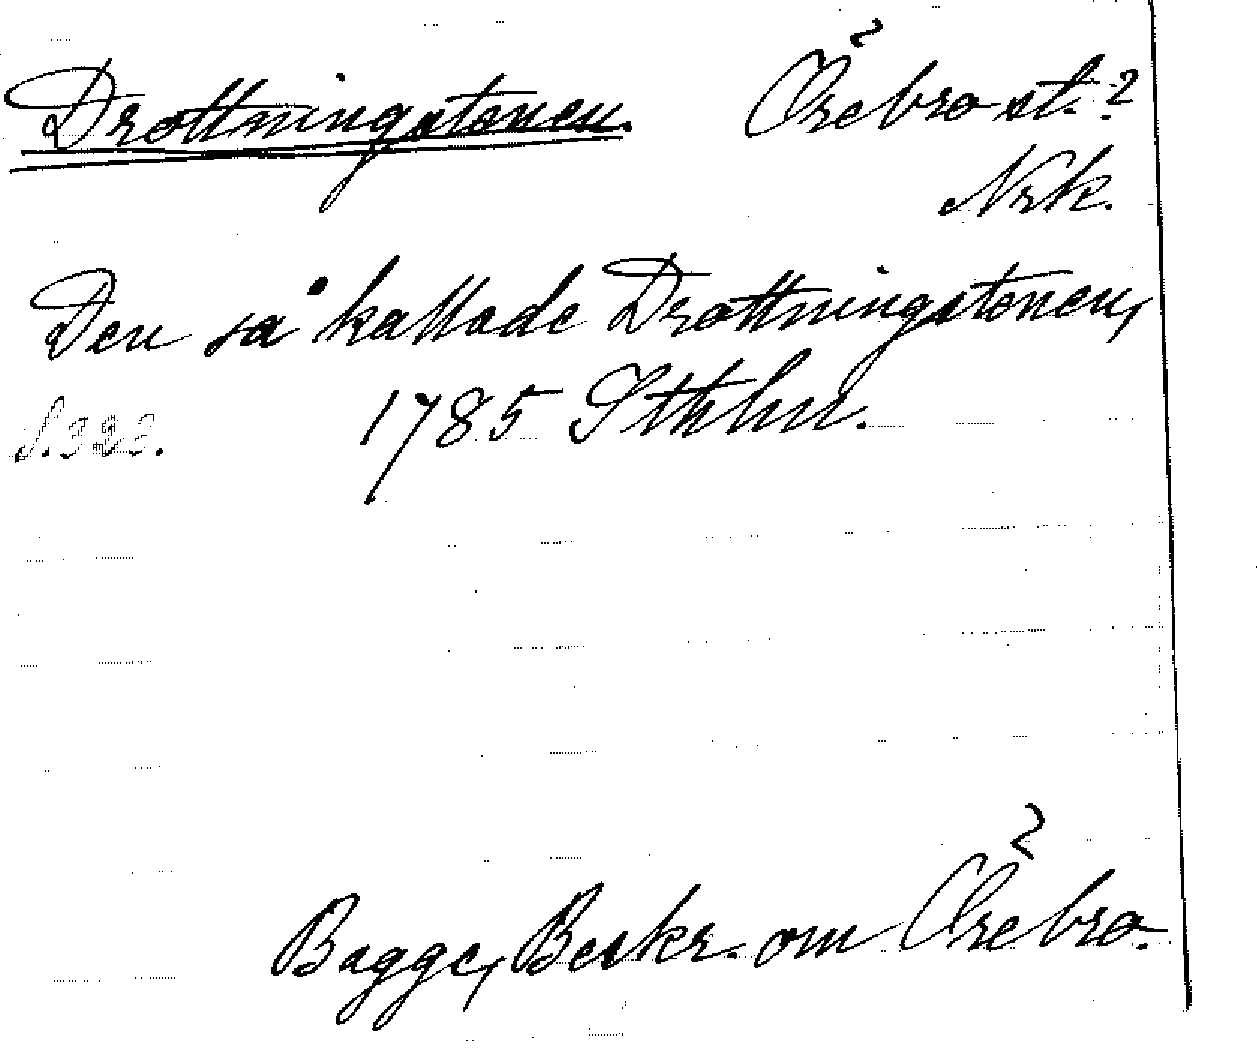 Drottningstenen. Örebro st.?
Nrk.
Den så kallade Drottningstenen,
S. 323. 1785 Sthlm.
Bagge, Beskr. om Örebro.